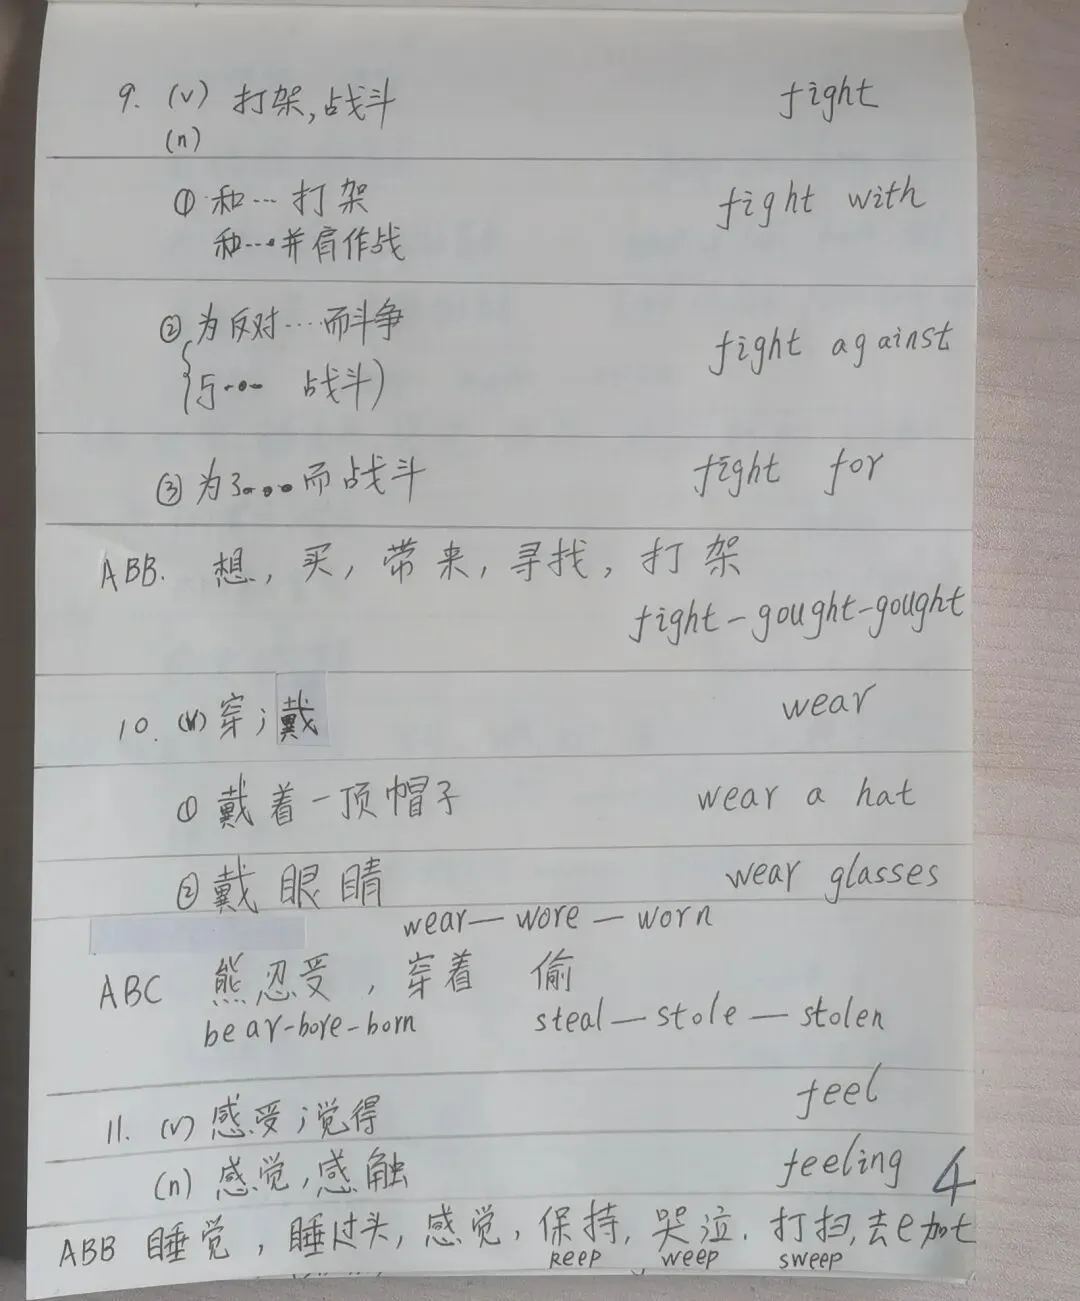 9. (v) 打架,战斗 fight
(n)
① 和… 打架 fight with
和…并肩作战
② 为反对……而斗争 fight against
{与… 战斗)
③ 为了…而战斗 fight for
ABB. 想, 买, 带来, 寻找, 打架
fight-gought-gought
10. (v) 穿;戴 wear
① 戴着一顶帽子 wear a hat
② 戴眼睛 wear glasses
wear—wore—worn
ABC 熊忍受, 穿着 偷
bear-bore-born steal—stole—stolen
11. (v) 感受;觉得 feel
(n) 感觉,感触 feeling 4
ABB 睡觉, 睡过头, 感觉, 保持, 哭泣. 打扫,去e加t
keep weep sweep